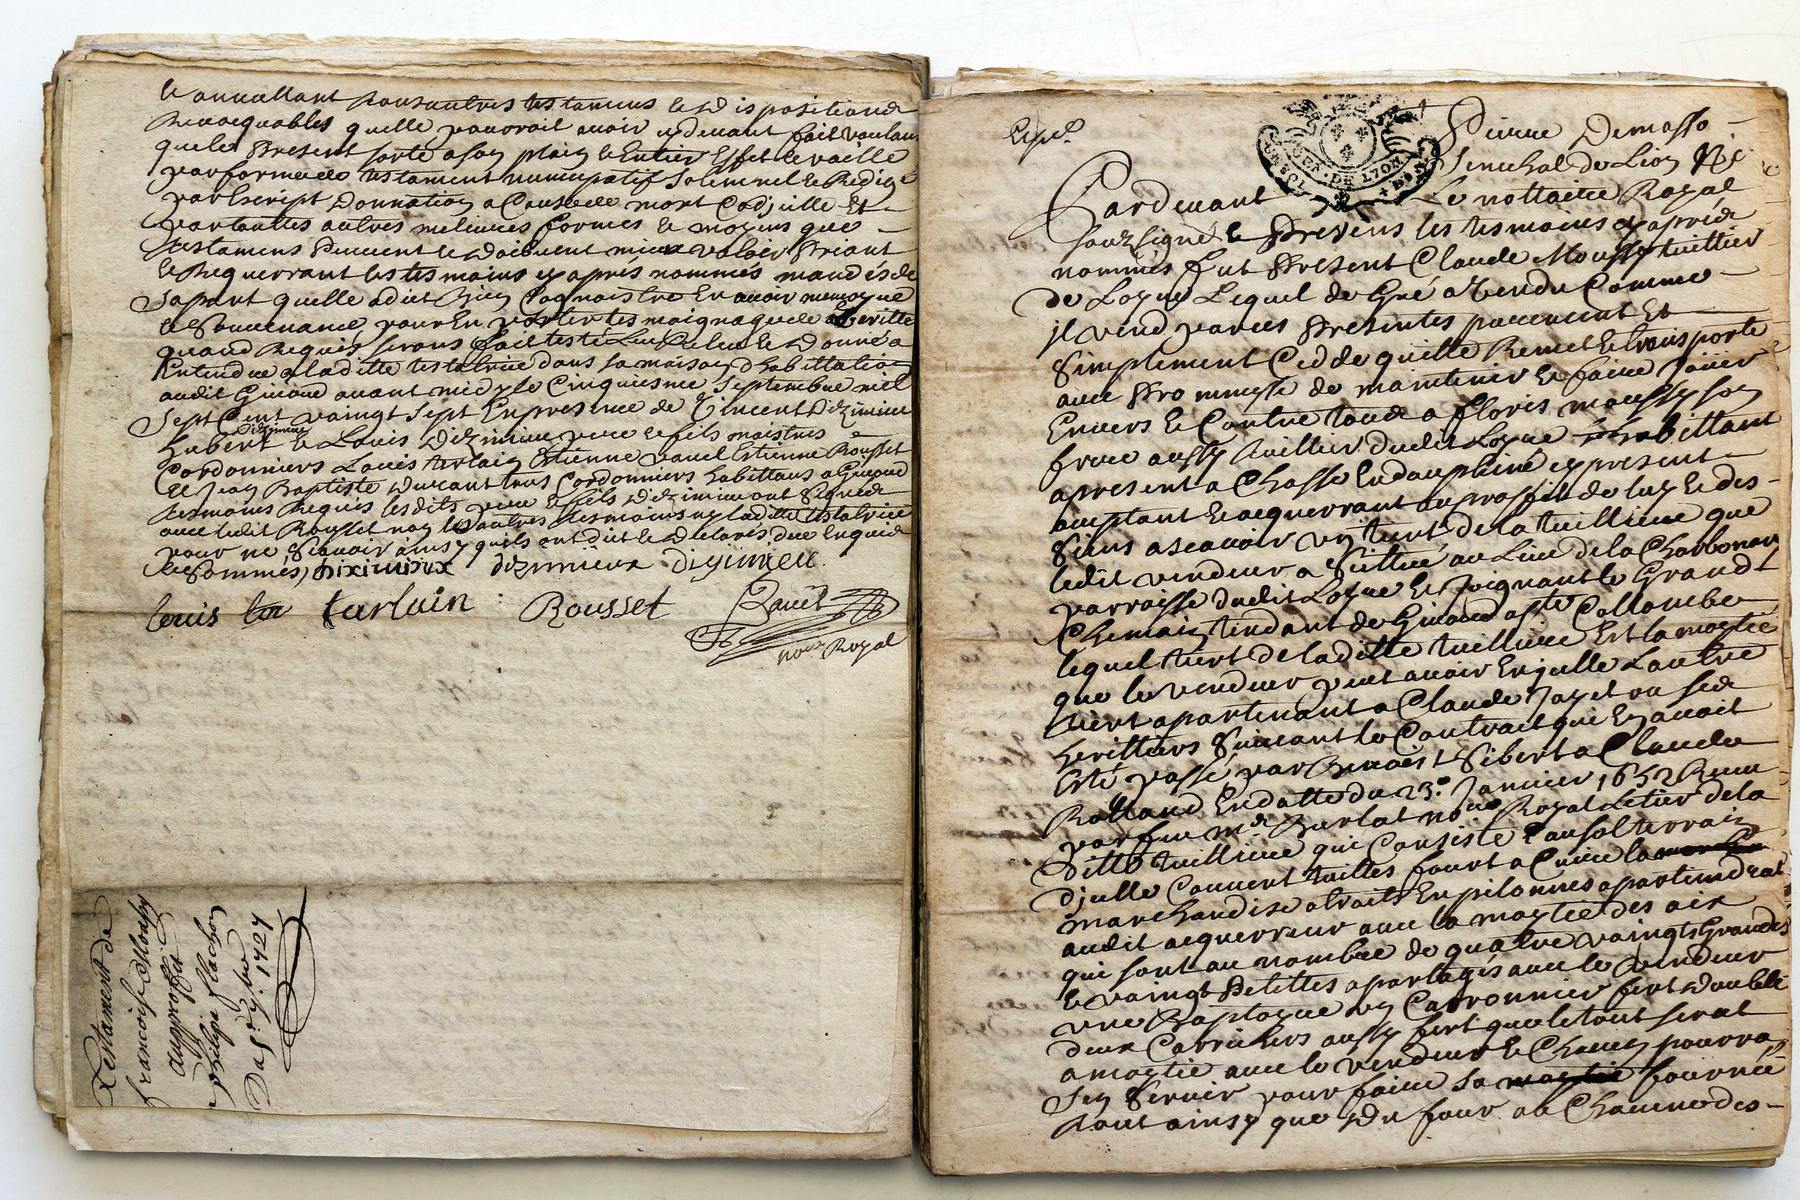 le annullant tous autres testamens et dispositions
Revocquables quelle pourroit avoir cydevant fait voulan
que le present sorte a son plain et Entier Effet et vaille
par forme de testament nuncupatif solemnel et Redigé
par Escript Donnation a Cause de mort Codjcille Et
par touttes autres melieures formes et moyens que
testamens peuvent et doibvent mieux valoir Priant
et Requerrant les tesmoins cy apres nommés mandés de
sa part quelle a dit Bien Cognoistre En avoir memoyre
et souvenance pour En porter tesmoignage de verité
quand Requis seront fait testé Leu Releu et Donné a
Entendre a laditte testatrice dans sa maison dhabittation
audit Givord avant midy le Cinquiesme Septembre mil
Sept Cent vaingt sept En presence de Vincent Dizimieu
hubert Dizimieu et Louis Dizimieu pere et fils maistres
Cordonniers Louis terlain Estienne Estienne Rousset
et Jean Baptiste Durant tous Cordonniers habittans a Givord
tesmoins Requis lesdits pere et fils Dizimieu ont signé
avec ledit Rousset non les autres tesmoins ny laditte testatrice
pour ne sçavoir ainsy quils ont dit et declarés de ce Enquis
et sommés, diximieux dizimieux dizimieu
louis ter terlain Rousset
nore Royal
Testament de
françoise Mousy
au proffit
philipe flachon
Du 5e 7bre 1727
Expé
GEN. DE LYON
Pierre Demasso
Senechal de Lion
Pardevant Le nottaire Royal
soubzsigné & Presens les tesmoins cy aprés
nommés fut Present Claude Moussy tuillier
de Loyre Lequel de Gré a Vendu Comme
jl vend par ces Presentes purement Et
Simplement Cedde quitte Remet et transporte
avec Prommesse de maintenir et faire Jouir
Envers et Contre tous a floris moussy son
frere aussy tuillier dudit Loyre habittant
a present a Chasse En dauphiné cy present
acceptant et acquerrant au proffit de luy et des
Siens a scavoir un tiert de la tuilliere que
ledit vendeur a Sittué au Lieu de la Charbonnr
parroisse dudit Loyre et Joignant le Grand
Chemain tendant de Givord a Ste Collombe
lequel tiert de laditte tuilliere Est la moytie
que le vendeur peut avoir En jcelle Lautre
tiert apartenant a Claude Jayet ou ses
heritiers Suivant le Contrait qui En avoit
Esté passé par Benoist Sibert a Claude
Rolland En datte du 23e Janvier 1652 Receu
par feu me Burlat nore Royal Le tier de la
ditte tuilliere qui Consiste au sol terrain
djcelle Couvert tuilles fourt a Cuire la
marchandise atraits En pilonnes apartiendrat
audit acquerreur avec la moytie des aix
qui sont au nombre de quatre vaingts Grandes
et vaingt Petittes a partagés avec le vendeur
une un Carronnier fert double
deux Carreliers aussy fert que le tout serat
a moytie avec le vendeur et Chacun pourra
sen Servir pour faire sa fournee
tout ainsy que Du four ou Chacune des